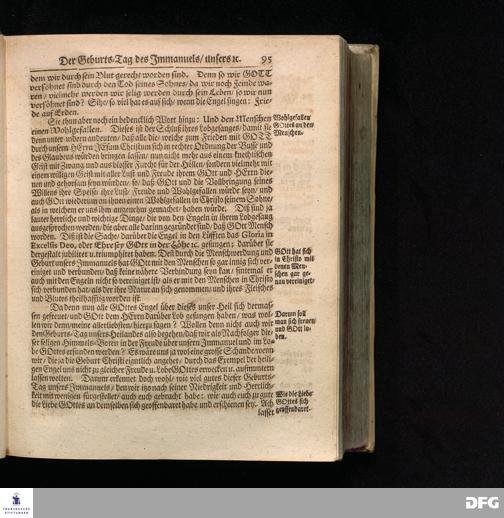 Der Geburts-Tag des Immanuels/ unsers ꝛc. 95
dem wir durch sein Blut gerecht worden sind. Denn so wir GOTT
versöhnet sind durch den Tod seines Sohnes/ da wir noch Feinde wa-
ren/ vielmehr werden wir selig werden durch sein Leben/ so wir nun
versöhnet sind? Sihe/ so viel hat es auf sich/ wenn die Engel singen: Frie-
de auf Erden.
Sie thun aber noch ein bedencklich Wort hinzu: Und den Menschen
einen Wohlgefallen. Dieses ist der Schluß ihres Lobgesanges/ damit sie
denn unter andern andeuten/ daß alle die/ welche zum Frieden mit GOTT
durch unsern HErrn JEsum Christum sich in rechter Ordnung der Busse und
des Glaubens würden bringen lassen/ nun nicht mehr aus einem knechtischen
Geist mit Zwang und aus blosser Furcht für der Höllen/ sondern vielmehr mit
einem willigen Geist mit aller Lust und Freude ihrem GOtt und HErrn die-
nen und gehorsam seyn würden/ so/ daß GOtt und die Vollbringung seines
Willens ihre Speise/ ihre Lust/ Freude und Wohlgefallen würde seyn/ und
auch GOtt wiederum an ihnen einen Wohlgefallen in Christo seinem Sohne/
als in welchem er uns ihm angenehm gemachet/ haben würde. Diß sind ja
lauter herrliche und wichtige Dinge/ die von den Engeln in ihrem Lobgesang
ausgesprochen werden/ die aber alle darinn gegründet sind/ daß GOtt Mensch
worden. Diß ist die Sache/ darüber die Engel in den Lüfften das Gloria in
Excelsis Deo, oder Ehre sey GOtt in der Höhe ꝛc. gesungen; darüber sie
dergestalt jubiliret und triumphiret haben. Deñ durch die Menschwerdung und
Geburt unsers Immanuels hat GOtt mit den Menschen so gar innig sich ver-
einiget und verbunden/ daß keine nähere Verbindung seyn kan/ sintemal er
auch mit den Engeln nicht so vereiniget ist/ als er mit den Menschen in Christo
sich verbunden hat/ als der ihre Natur an sich genommen/ und ihres Fleisches
und Blutes theilhafftig worden ist.
Da denn nun alle GOttes Engel über dieses unser Heil sich dermas-
sen gefreuet/ und GOtt dem HErrn darüber Lob gesungen haben/ was wol-
len wir denn/ meine allerliebsten/ hierzu sagen? Wollen denn nicht auch wir
den Geburts-Tag unsers Heilandes also begehen/ daß wir als Nachfolger die-
ser seligen Himmels-Boten in der Freude über unsern Immanuel und im Lo-
be GOttes erfunden werden? Es wäre uns ja wol eine grosse Schande/ wenn
wir/ die ja die Geburt Christi eigentlich angehet/ durch das Exempel der heili-
gen Engel uns nicht zu gleicher Freude u. Lobe GOttes erwecken u. aufmuntern
lassen wolten. Darum erkennet doch wohl/ wie viel gutes dieser Geburts-
Tag unsers Immanuels/ den wir itzo nach seiner Niedrigkeit und Herrlich-
keit mit wenigen fürgestellet/ auch euch gebracht habe: wie auch euch zu gute
die Liebe GOttes an demselben sich geoffenbaret habe und erschienen sey. Ach
lasset
Wohlgefallen
GOttes an den
Menschen.
GOtt hat sich
in Christo mit
denen Men-
schen gar ge-
nau vereiniget.
Darum soll
man sich freuen/
und GOtt lo-
ben.
Wie die Liebe
GOttes sich
geoffenbaret.
FRANCKESCHE
STIFTUNGEN
DFG